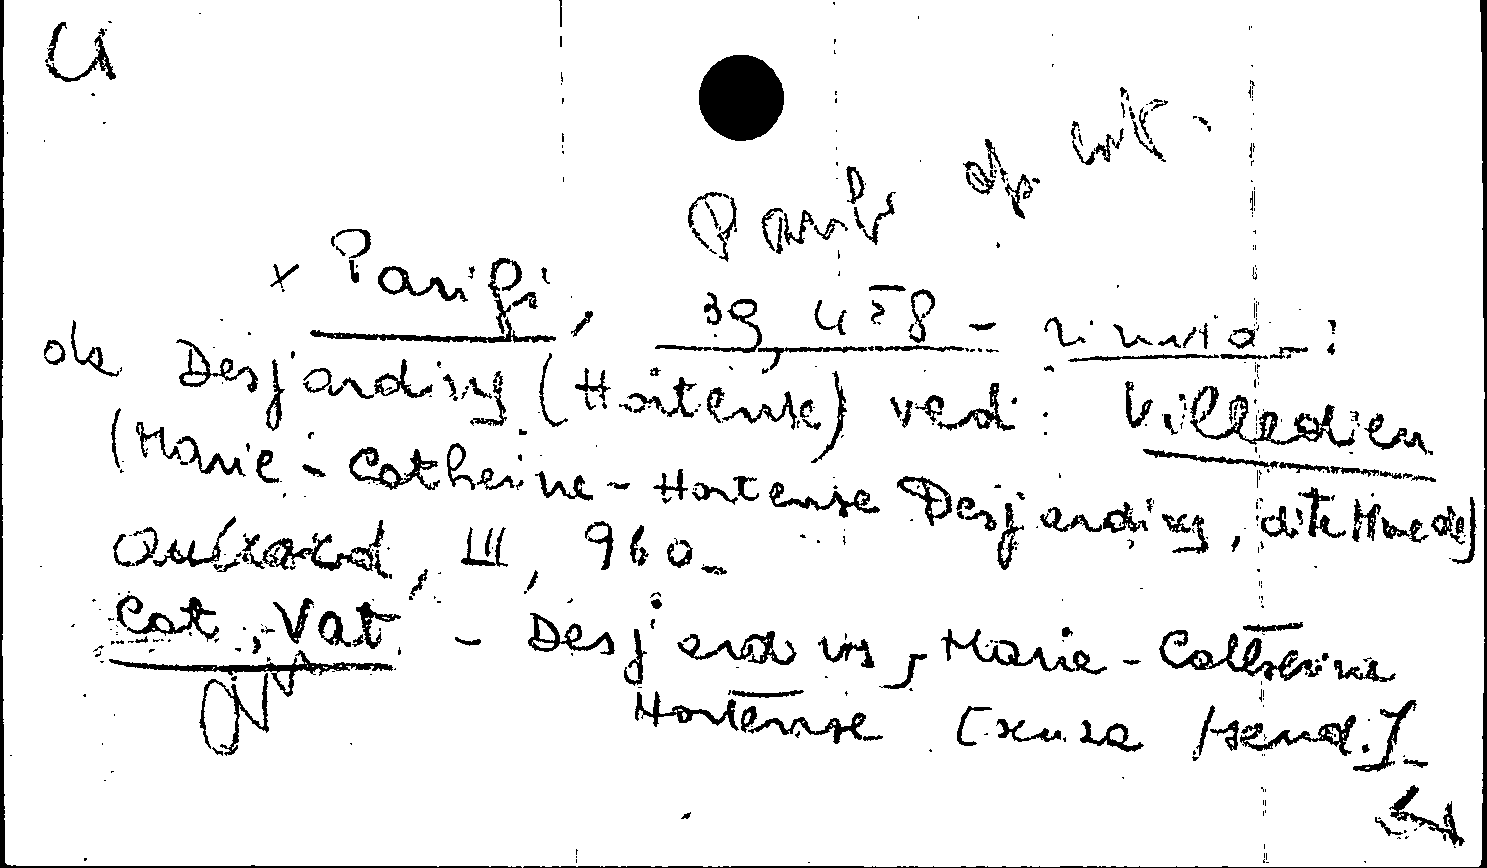 Parigi op. cit.
x Parigi, 39, 458 - rinvia:
da Desjardins (Hortense) vedi: Villedieu
(Marie-Catherine-Hortense Desjardins, dite Mme de)
Quérard, III, 960.
Cat. Vat. - Desjardins, Marie-Catherine
Hortense [senza pseud.]